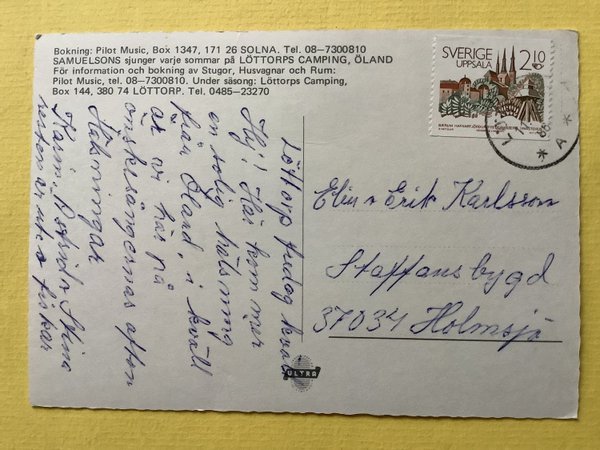 Bokning: Pilot Music, Box 1347, 171 26 SOLNA. Tel. 08—7300810
SAMUELSONS sjunger varje sommar på LÖTTORPS CAMPING, ÖLAND
För information och bokning av Stugor, Husvagnar och Rum:
Pilot Music, tel. 08—7300810. Under säsong: Löttorps Camping,
Box 144, 380 74 LÖTTORP. Tel. 0485—23270
SVERIGE 2.10
UPPSALA
Löttorp fredag kväll
Hej! Här kommer
en solig hälsning
från Öland, i kväll
är vi här på
önskesångernas afton
Hälsningar
Karin Stina
resten är ute o fiskar
Elin o Erik Karlsson
Staffansbygd
37034 Holmsjö
ULTRA